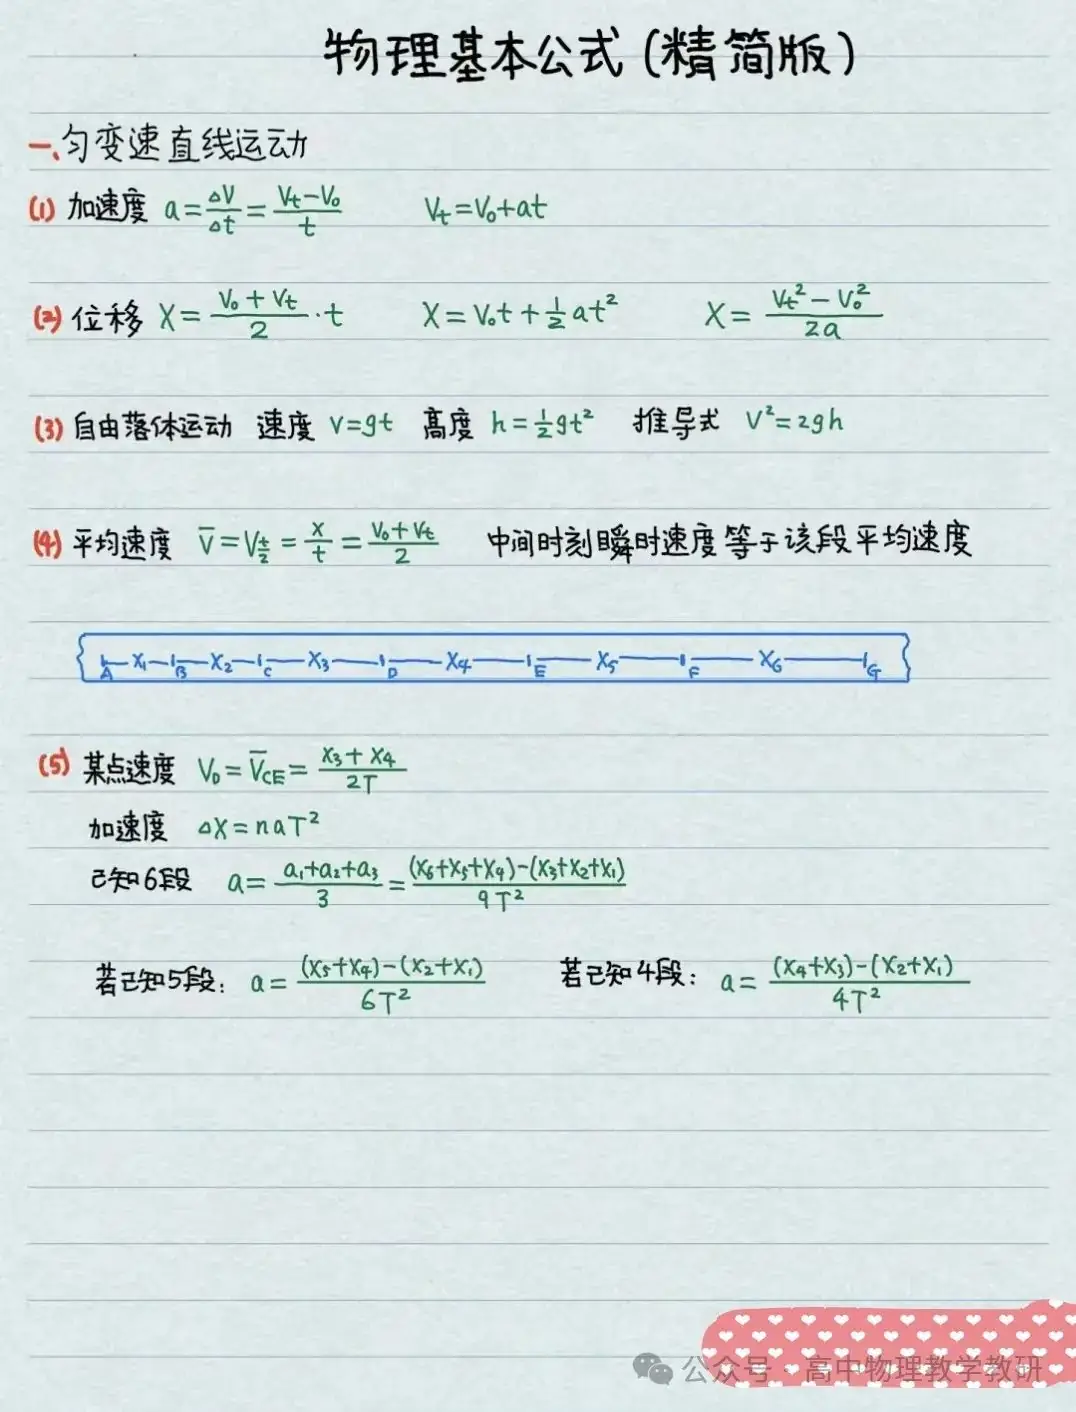 物理基本公式(精简版)
一、匀变速直线运动
(1) 加速度 a=△V/△t=(Vt-V₀)/t Vt=V₀+at
(2) 位移 X=(V₀+Vt)/2·t X=V₀t+½at² X=(Vt²-V₀²)/2a
(3) 自由落体运动 速度 v=gt 高度 h=½gt² 推导式 V²=2gh
(4) 平均速度 V̄=V_{t/2}=x/t=(V₀+Vt)/2 中间时刻瞬时速度等于该段平均速度
A X₁ B X₂ C X₃ D X₄ E X₅ F X₆ G
(5) 某点速度 V_D=V̄_CE=(X₃+X₄)/2T
加速度 △X=naT²
已知6段 a=(a₁+a₂+a₃)/3=((X₆+X₅+X₄)-(X₃+X₂+X₁))/9T²
若已知5段: a=((X₅+X₄)-(X₂+X₁))/6T² 若已知4段: a=((X₄+X₃)-(X₂+X₁))/4T²
公众号·高中物理教学教研